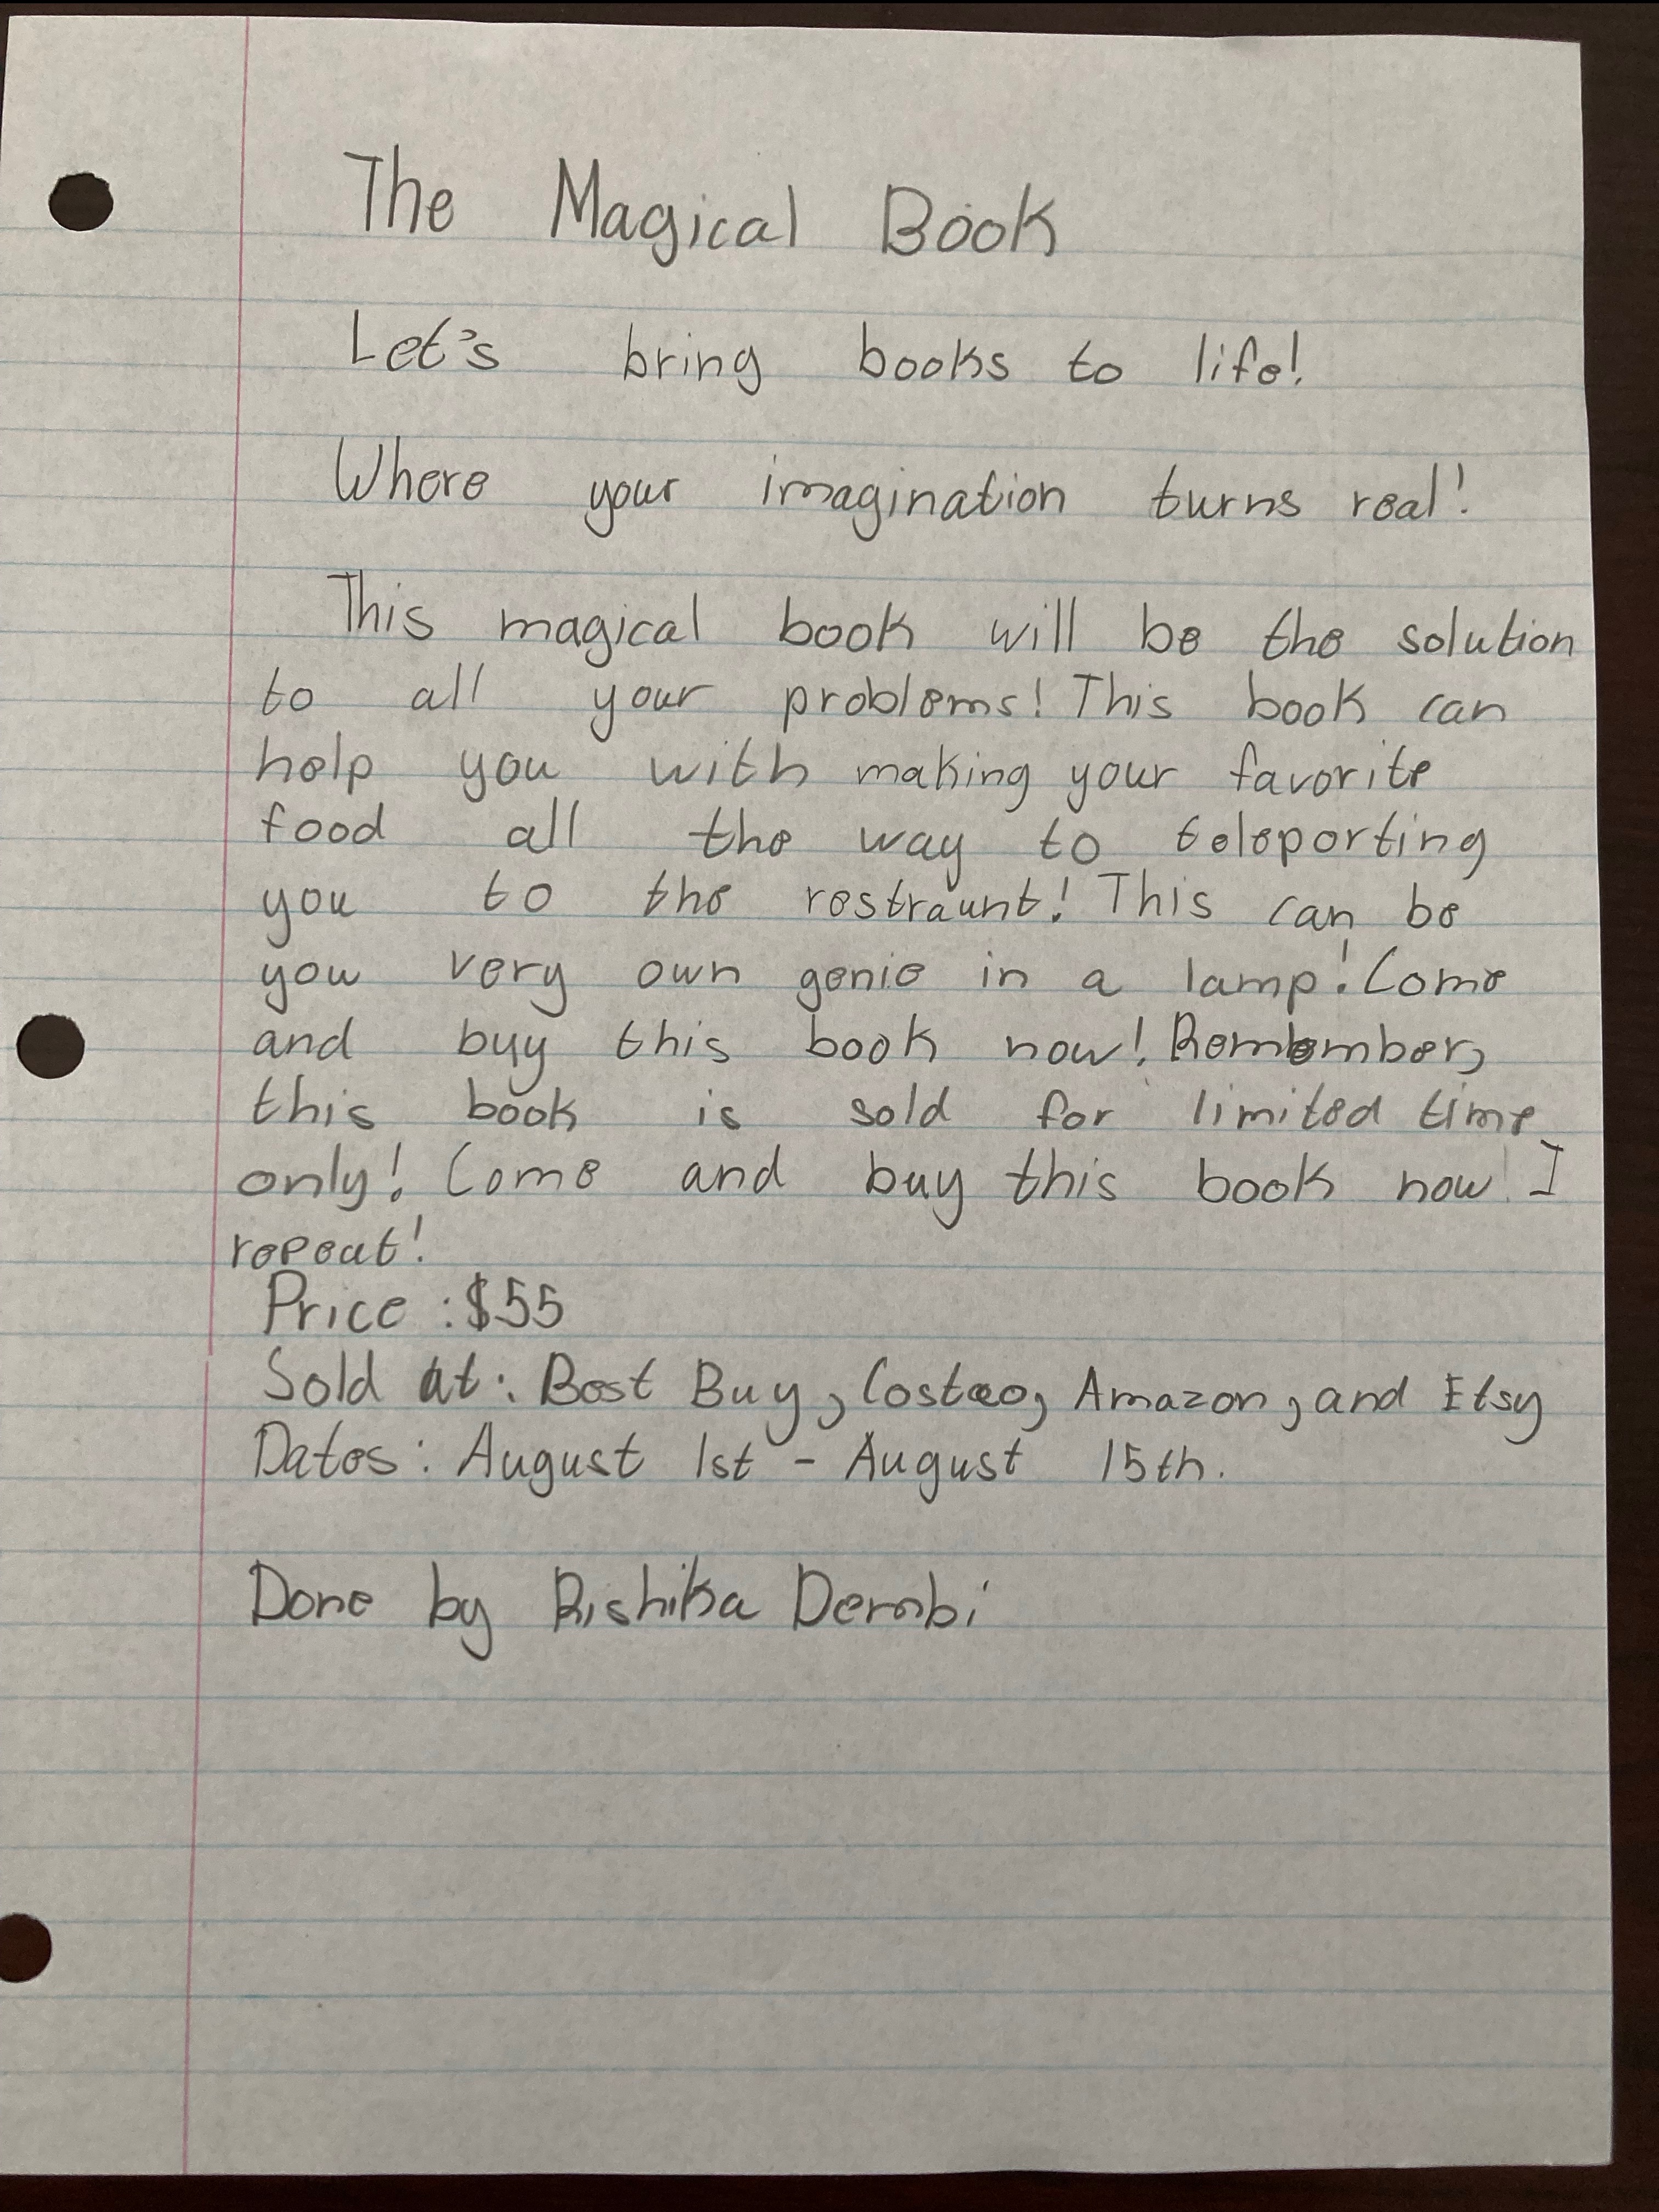 The Magical Book
Let's bring books to life!
Where your imagination turns real!
This magical book will be the solution
to all your problems! This book can
help you with making your favorite
food all the way to teleporting
you to the restraunt! This can be
you very own genie in a lamp! Come
and buy this book now! Remember,
this book is sold for limited time
only! Come and buy this book now! I
repeat!
Price : $55
Sold at: Best Buy, Costco, Amazon, and Etsy
Dates: August 1st - August 15th.
Done by Rishika Dembi